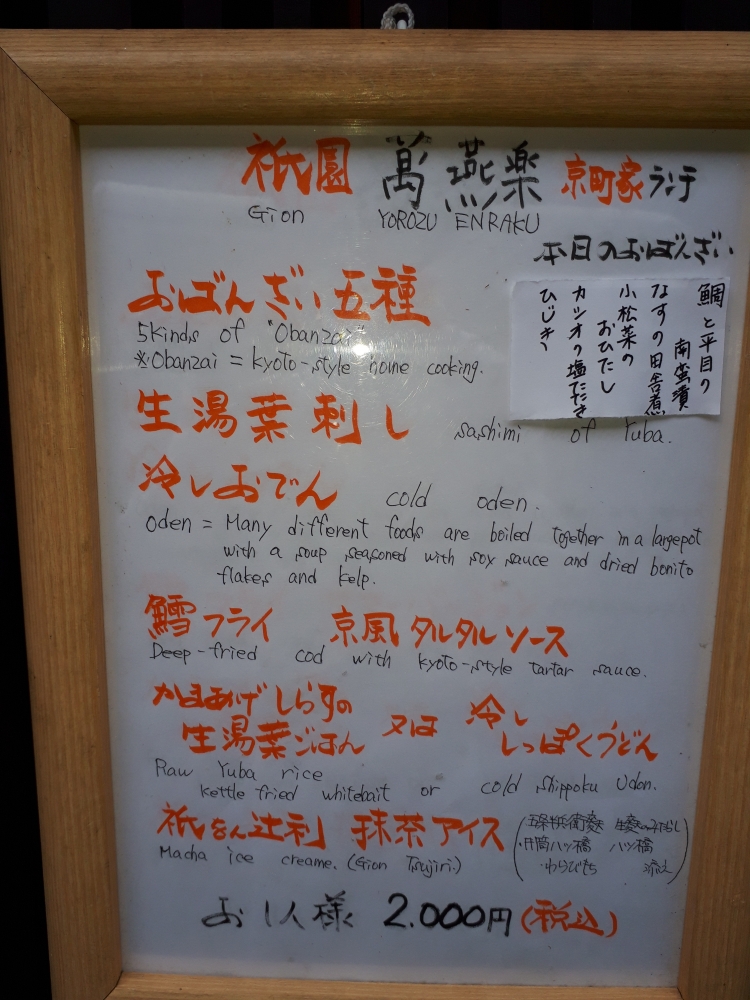 祇園 萬燕楽 京町家ランチ
Gion YOROZU ENRAKU
本日のおばんざい
鯛と平目の
南蛮漬
なすの田舎煮
小松菜の
おひたし
カツオの塩たたき
ひじき
おばんざい五種
5kinds of "Obanzai"
※Obanzai = kyoto-style home cooking.
生湯葉刺し sashimi of Yuba.
冷しおでん cold oden.
oden = Many different foods are boiled together in a largepot
with a soup seasoned with soy sauce and dried bonito
flakes and kelp.
鱈フライ 京風タルタルソース
Deep-fried cod with kyoto-style tartar sauce.
かまあげしらすの
生湯葉ごはん 又は 冷し
しっぽくうどん
Raw Yuba rice
kettle fried whitebait or cold shippoku Udon.
祇をん辻利 抹茶アイス
Macha ice creame. (Gion Tsujiri.)
(五条半兵衛麸 生麸のみたらし
八ッ橋 八ッ橋
・わらびもち 添え)
お1人様 2.000円(税込)